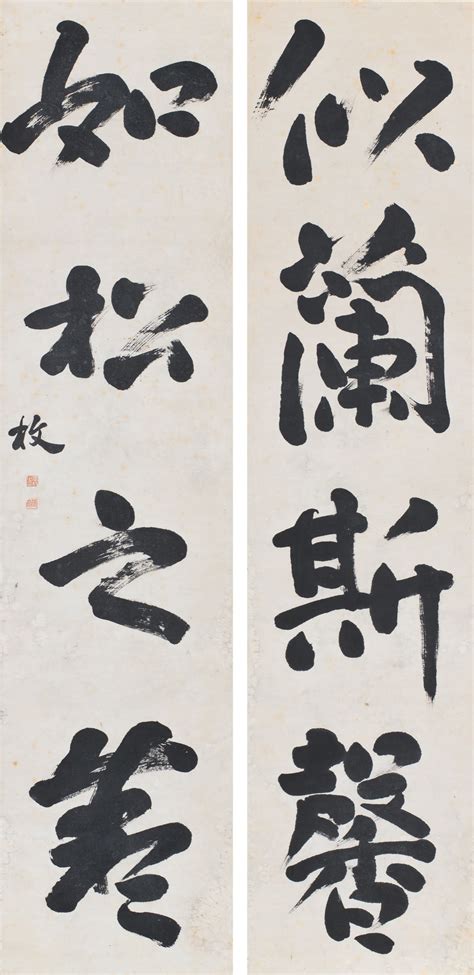 似蘭斯馨
如松之盛
枚